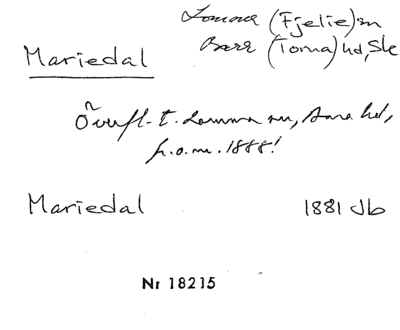 Lomma (Fjelie) sn
Mariedal
Bara (Torna) hd, Sk
Överfl. t. Lomma sn, Bara hd,
fr.o.m. 1888!
Mariedal 1881 Jb
Nr 18215